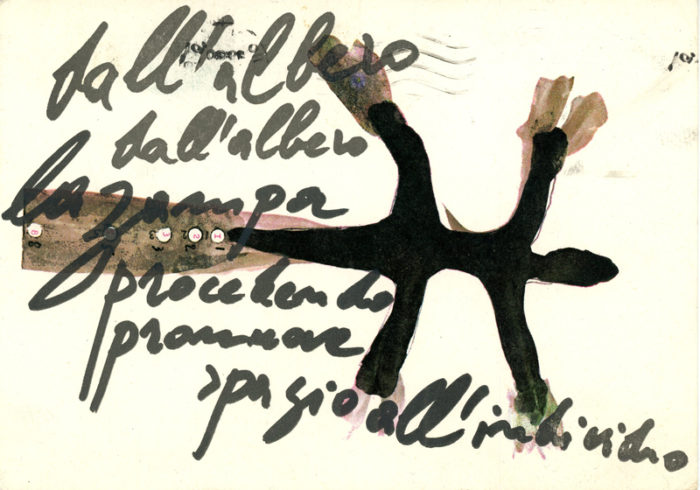 dall'albero
dall'albero
la zampa
procedendo
promuove
spazio all'individuo